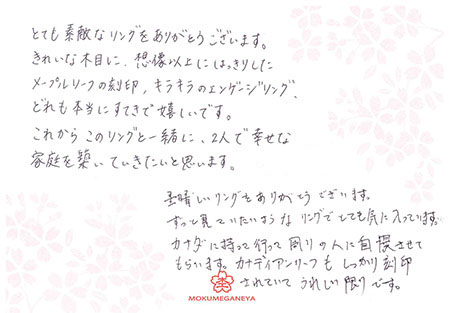 とても素敵なリングをありがとうございます。
きれいな木目に、想像以上にはっきりした
メープルリーフの刻印、キラキラのエンゲージリング、
どれも本当にすてきで嬉しいです。
これから このリングと一緒に、2人で幸せな
家庭を築いていきたいと思います。
素晴しいリングをありがとうございます。
ずっと見ていたいような リングでとても気に入っています。
カナダに持って行って周りの人に自慢させて
もらいます。カナディアンリーフも しっかり刻印
されていて うれしい限りです。
MOKUMEGANEYA